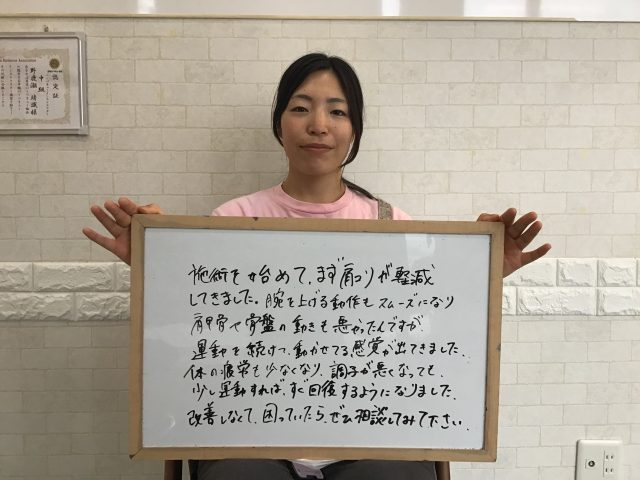 認定証
中級
施術を始めて、まず肩コリが軽減
してきました。腕を上げる動作もスムーズになり
肩甲骨や骨盤の動きも悪かったんですが
運動を続けて、動かせてる感覚が出てきました。
体の疲労も少なくなり、調子が悪くなっても、
少し運動すれば、すぐ回復するようになりました。
改善しなくて、困っていたら、ぜひ相談してみて下さい。